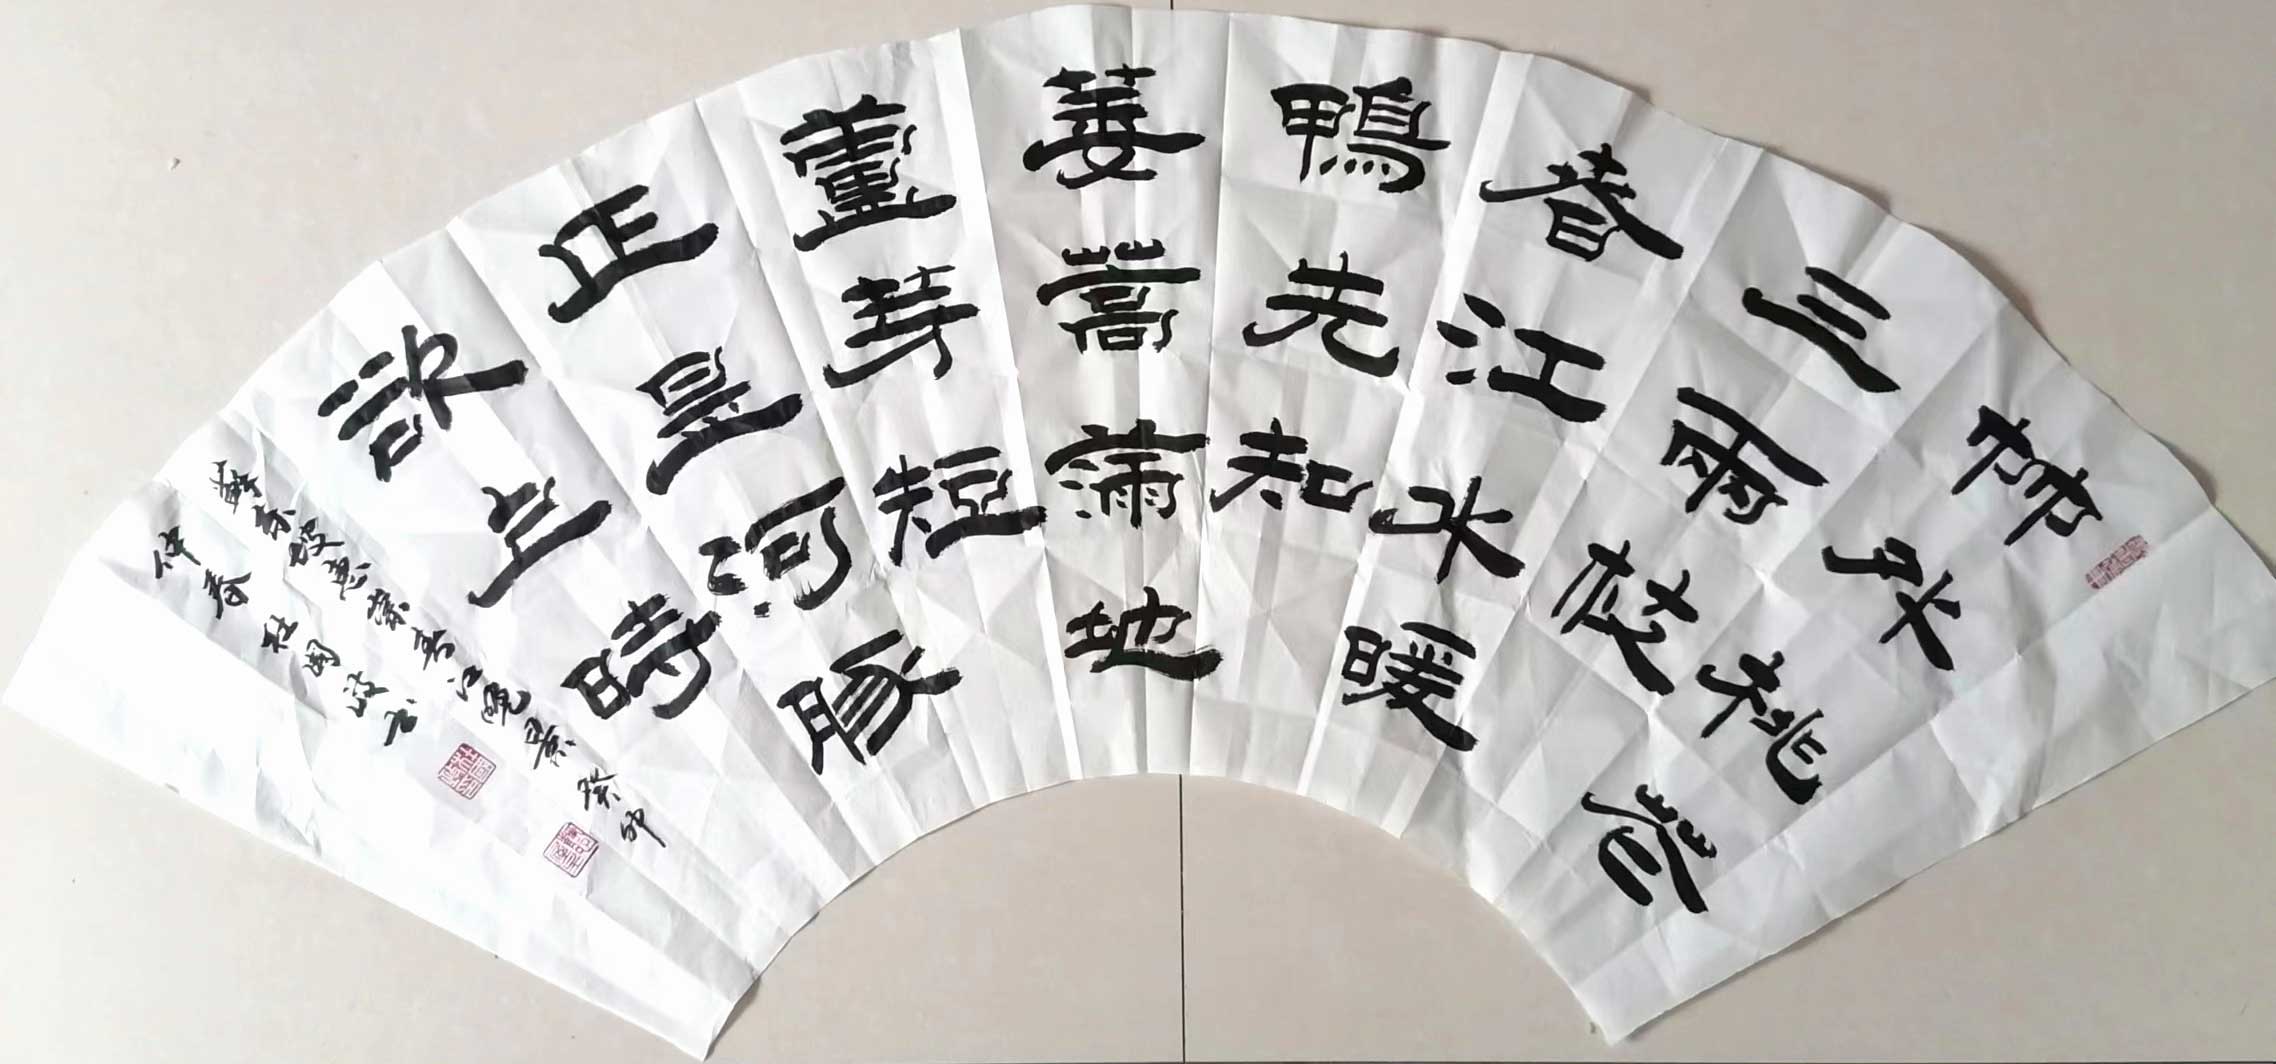 竹外桃花
三兩枝
春江水暖
鴨先知
蔞蒿滿地
蘆芽短
正是河豚
欲上時
蘇東坡惠崇春江晚景癸卯
仲春杜國书